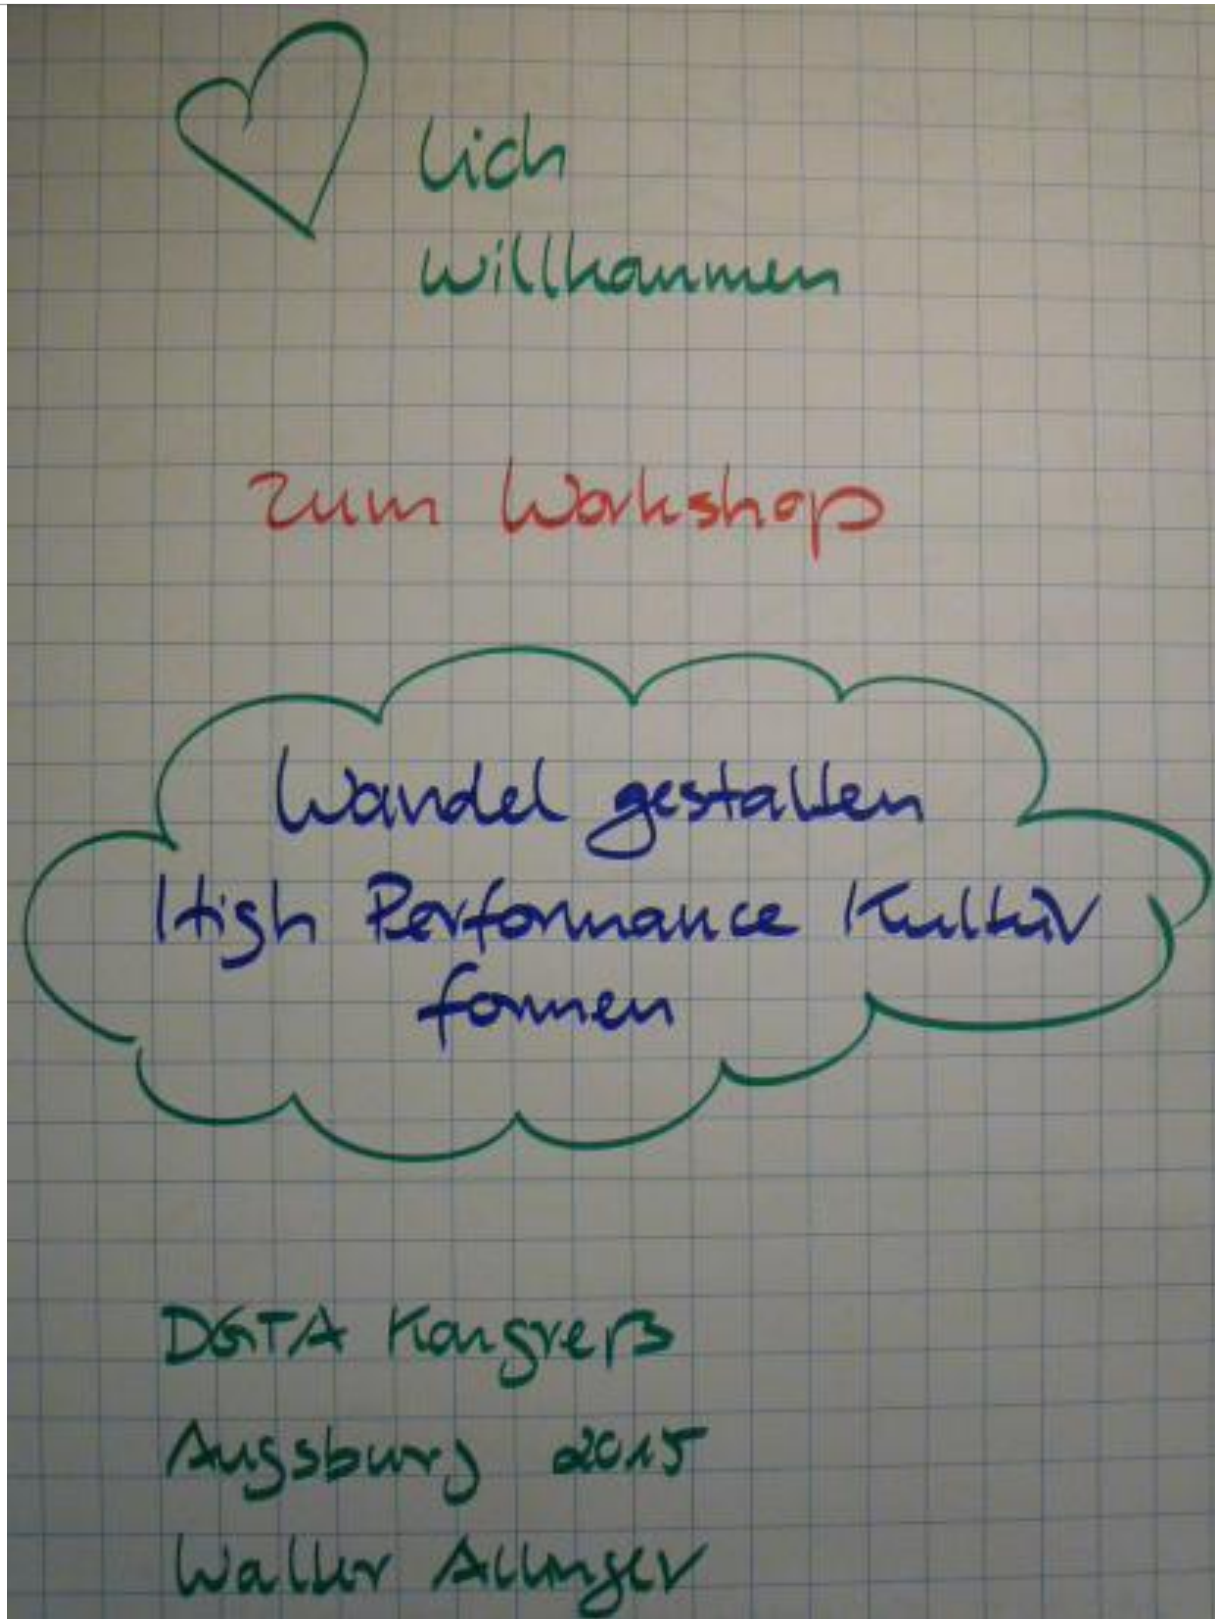 lich
willkommen
zum Workshop
Wandel gestalten
High Performance Kultur
formen
DGTA Kongreß
Augsburg 2015
Walter